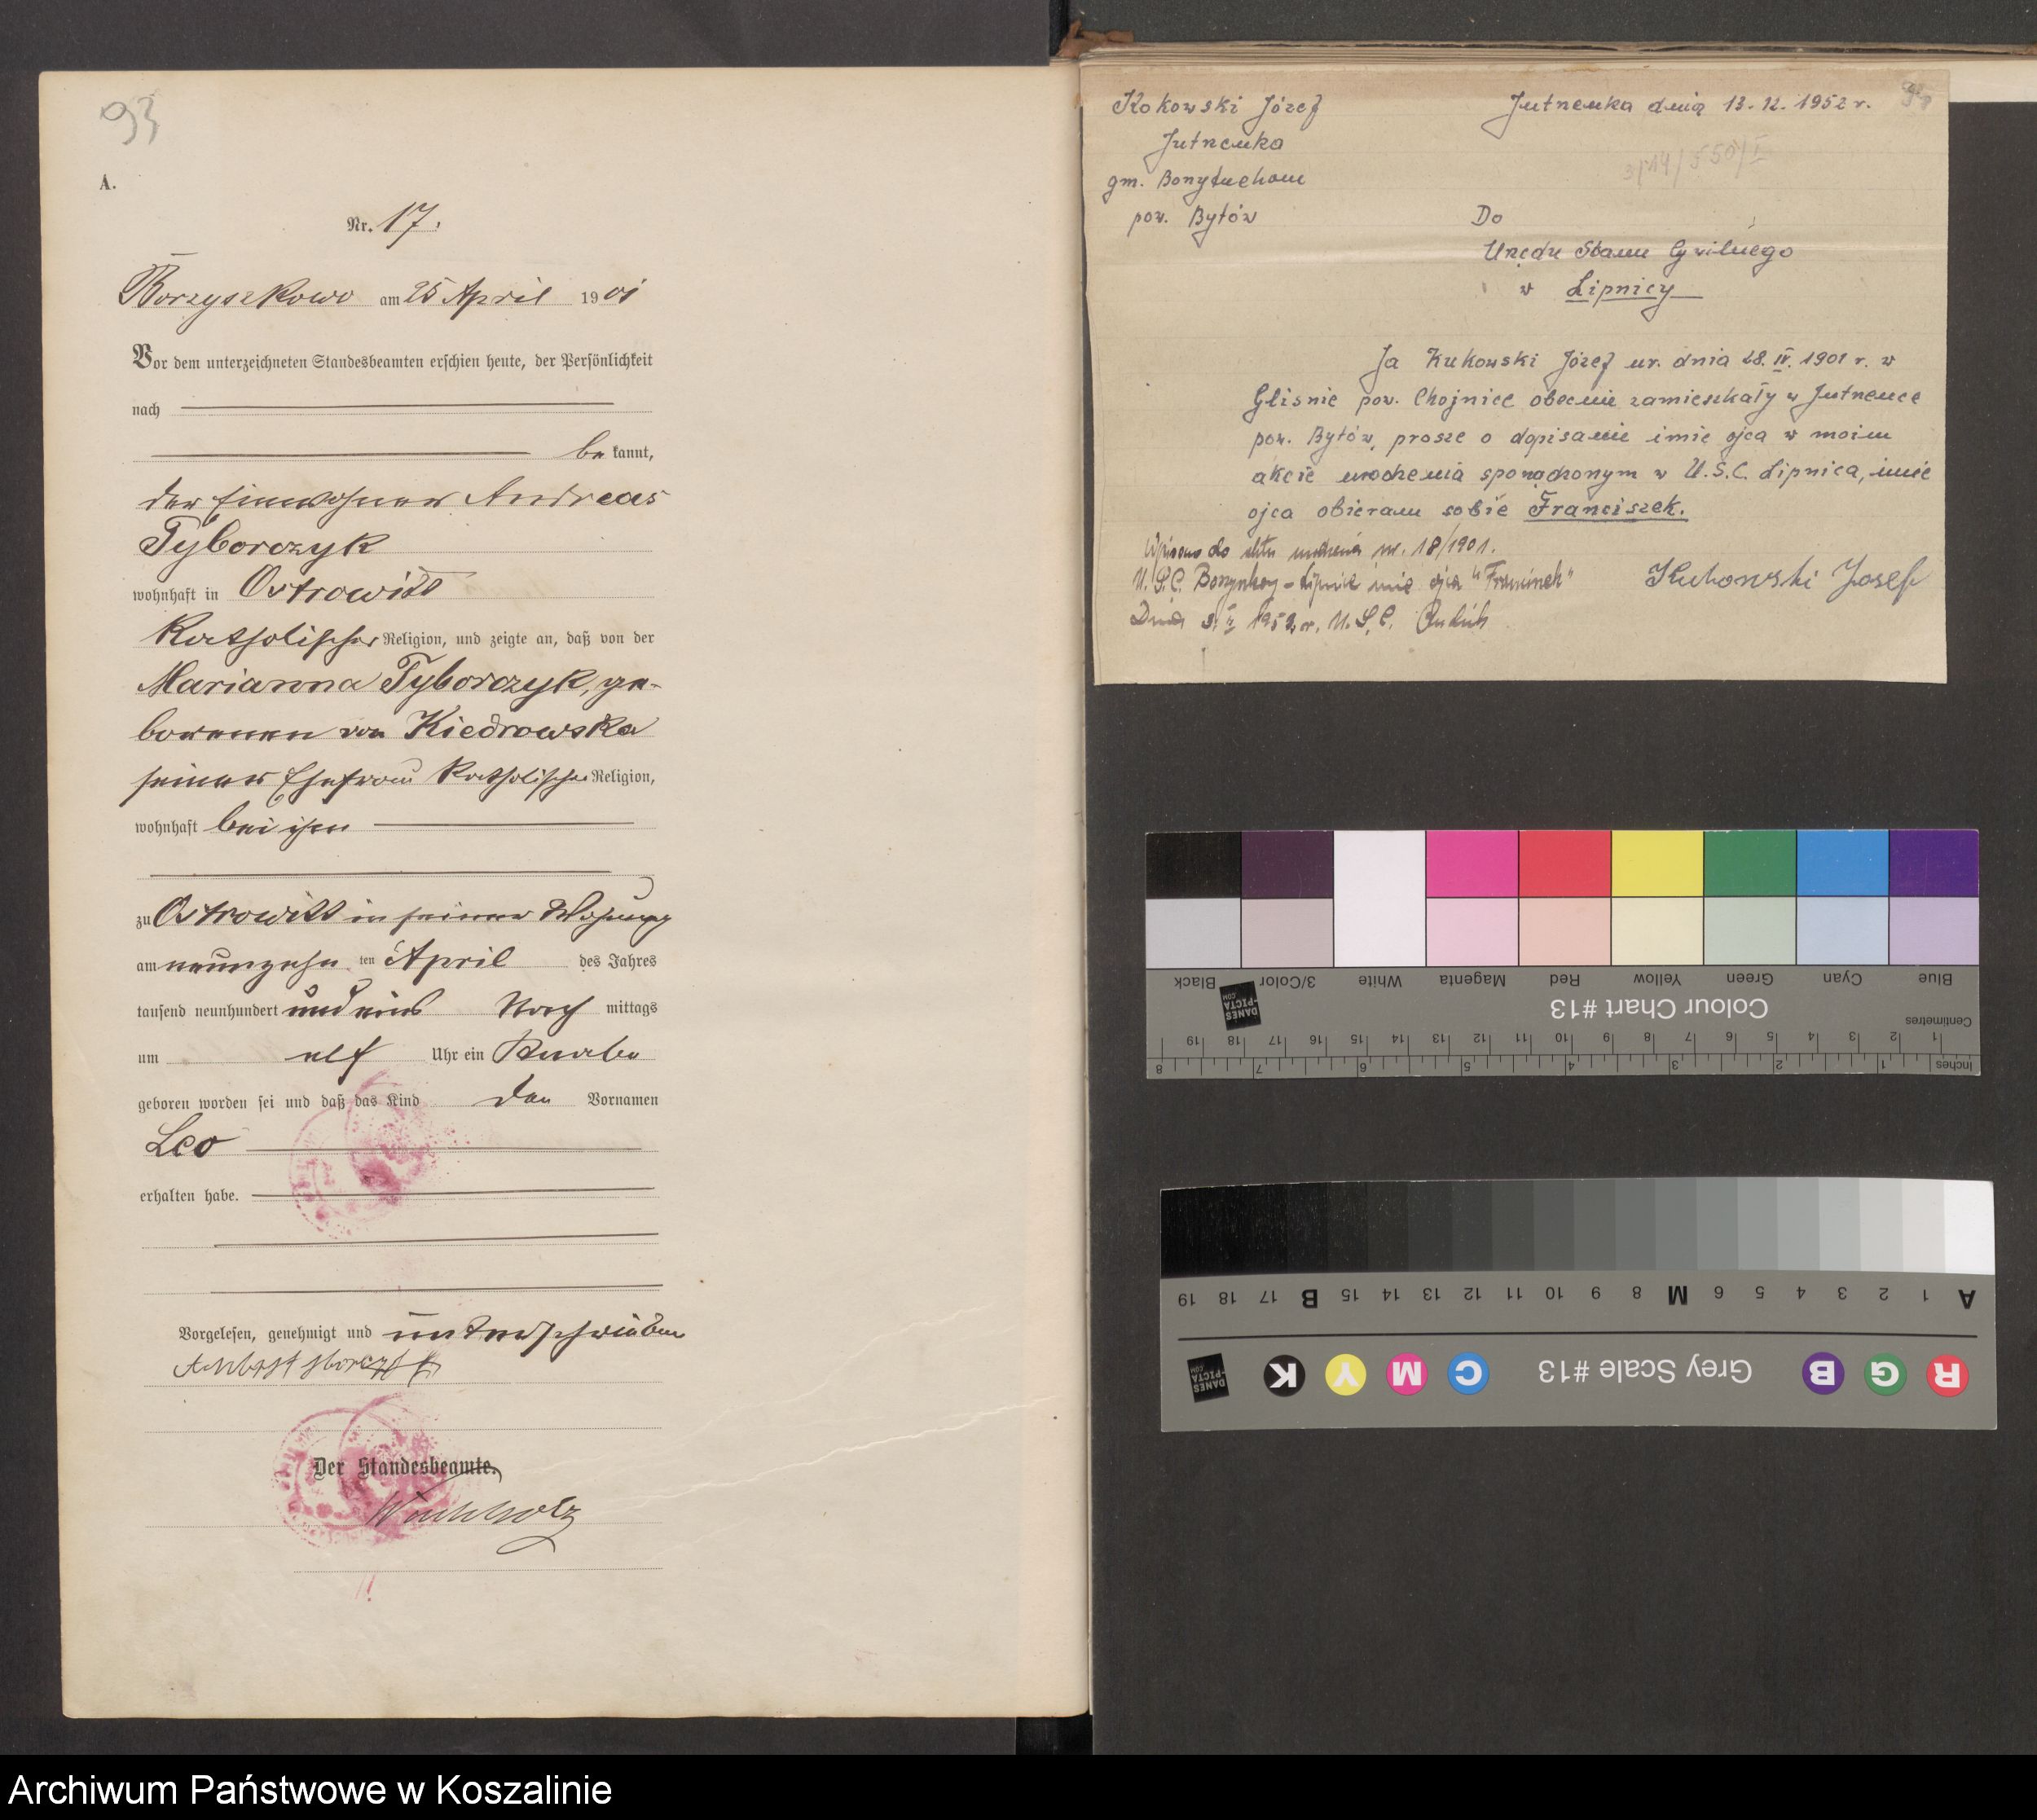 93
A.
Nr. 17.
Borzyszkowo am 25 April 1901
Vor dem unterzeichneten Standesbeamten erschien heute, der Persönlichkeit
nach
bekannt,
der Einwohner Andreas
Tyborczyk
wohnhaft in Ostrowitt
katholischer Religion, und zeigte an, daß von der
Marianna Tyborczyk, ge-
borenen von Kiedrowska
seiner Ehefrau katholischer Religion,
wohnhaft bei ihm
zu Ostrowitt in seiner Wohnung
am neunzehn ten April des Jahres
tausend neunhundert und eins Nach mittags
um elf Uhr ein Knabe
geboren worden sei und daß das Kind den Vornamen
Leo
erhalten habe.
Vorgelesen, genehmigt und unterschrieben
Der Standesbeamte.
Wachholz
Kokowski Józef
Jutrzenka dnia 13. 12. 1952 r.
Jutrzenka
gm. Borzytuchom
pow. Bytów
Do
Urzędu Stanu Cywilnego
w Lipnicy
Ja Kukowski Józef ur. dnia 28. IV. 1901 r. w
Gliśnie pow. Chojnice obecnie zamieszkały w Jutrzence
pow. Bytów, prosze o dopisanie imie ojca w moim
akcie urodzenia sporządzonym w U.S.C. Lipnica, imie
ojca obieram sobie Franciszek.
Wpisano do aktu urodzenia nr. 18/1901.
U.S.C. Borzyszkowy-Lipnica imię ojca "Franciszek"
Kukowski Josef
Black 3/Color White Magenta Red Yellow Green Cyan Blue
Colour Chart #13
DANES-PICTA.COM
Centimetres
1 2 3 4 5 6 7 8 9 10 11 12 13 14 15 16 17 18 19
Inches
1 2 3 4 5 6 7 8
A 1 2 3 4 5 6 M 8 9 10 11 12 13 14 15 B 17 18 19
R G B Grey Scale #13 C M Y K
DANES-PICTA.COM
Archiwum Państwowe w Koszalinie